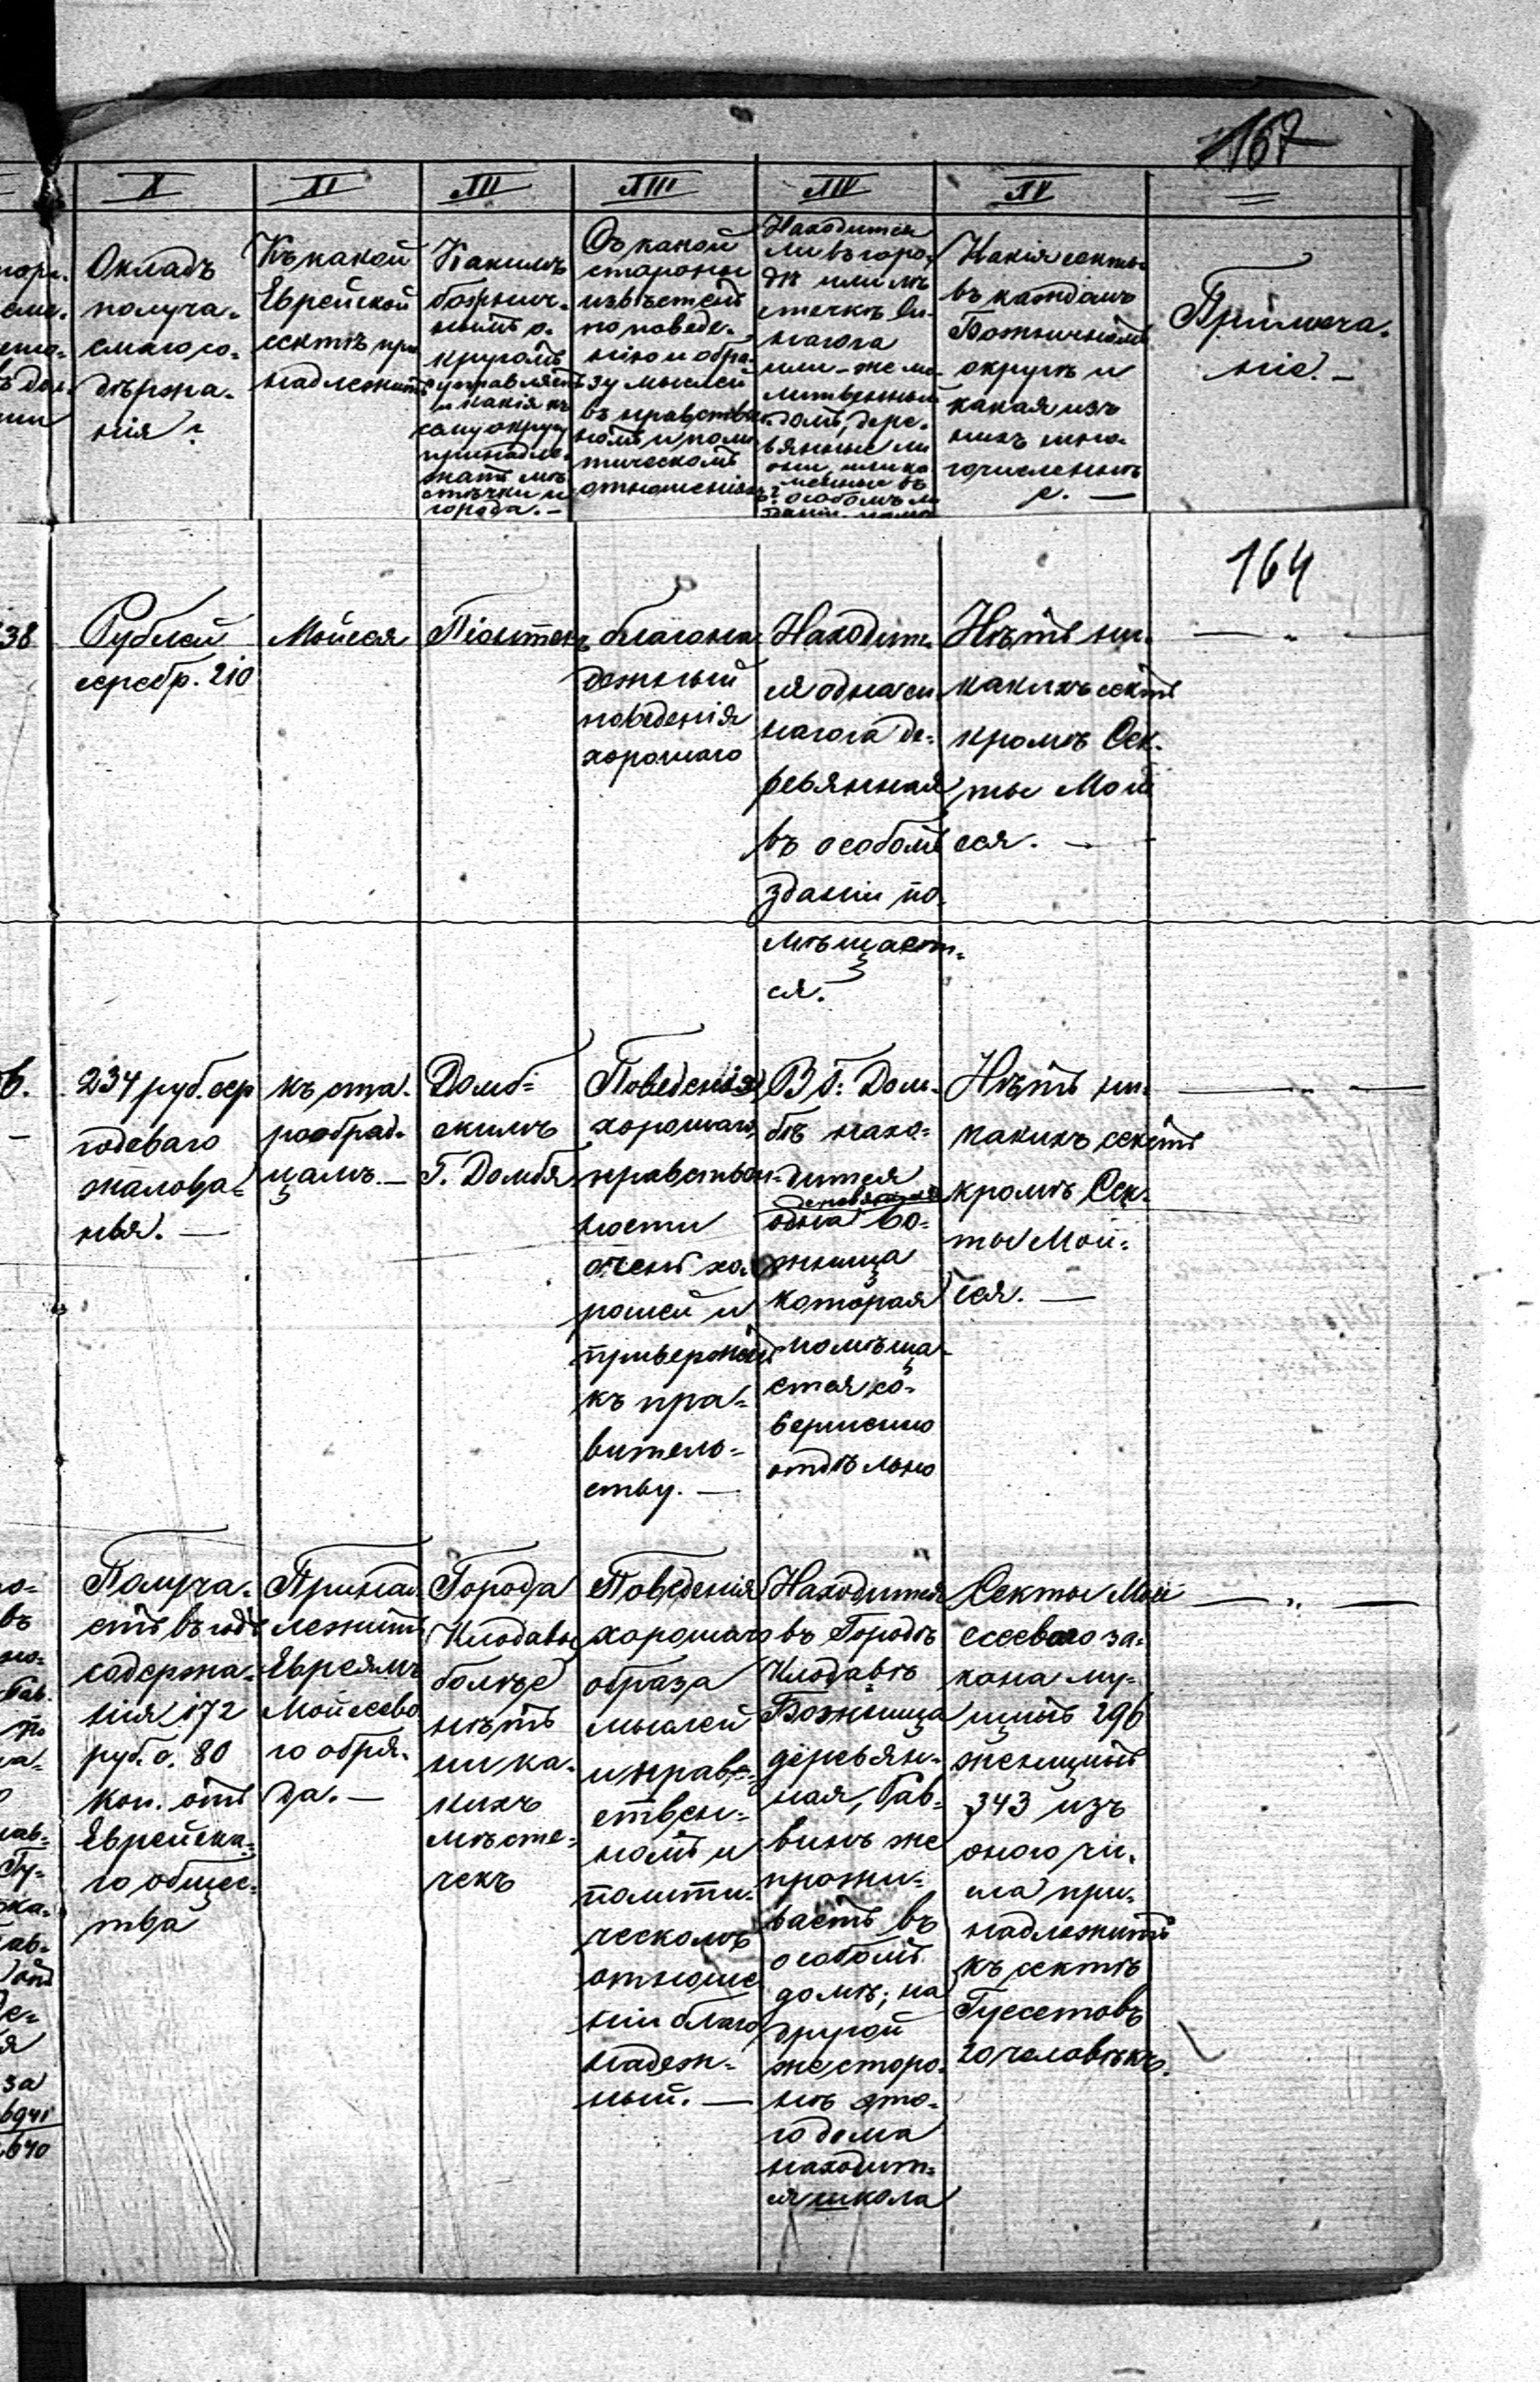 167
X
XI
XII
XIII
XIV
XV
=
Окладъ
получа-
емаго со-
дѣржа-
нія?
Къ какой
Еврейской
сектѣ при
надлежитъ
Какимъ
божнич-
нымъ о-
кругомъ
управляетъ
и какія къ
сему округу
принадле-
жатъ мѣ-
стѣчки и
города. —
Съ какой
стороны
извѣстенъ
по поведе-
нію и обра-
зу мыслей
въ нравствен
номъ и поли
тическомъ
отношеніяхъ?
Находится
ли въ горо-
дѣ или мѣ
стечкѣ си-
нагога
или-же мо-
литвенный
домъ, дере-
вянные ли
они, или ка
менные въ
особомъ ли
зданіи
Какія секты
въ каждомъ
Божничномъ
округѣ и
какая изъ
нихъ мно-
гочисленнѣ
е. —
Примѣча-
ніе. —
164
38
Рублей
серебр. 210
Мойсея
Піонтекъ
благона
дежный
поведенія
хорошаго
Находит-
ся одна си
нагога де-
ревянная
въ особомъ
зданіи по-
мѣщает-
ся.
Нѣтъ ни-
какихъ сектъ
кромѣ Сек-
ты Мой
сея. —
— „ —
234 руб. сер
годеваго
жалова-
нья. —
къ ста-
рообряд-
цамъ. —
Домб-
скимъ
Г. Домбя
Поведенія
хорошаго,
нравствен-
ности
очень хо-
рошей и
приверженъ
къ пра-
витель-
ству. —
В Г. Дом-
бѣ нахо-
дится
деревянная
одна Бо-
жница
которая
помѣща-
ется со-
вершенно
отдѣльно
Нѣтъ ни-
какихъ сектъ
кромѣ Сек-
ты Мой-
сея. —
— „ —
Получа-
етъ въ годъ
содержа-
нія 172
руб. с. 80
коп. отъ
Еврейска-
го общес-
тва
Принад
лежитъ
Евреямъ
Мойсева
го обря-
да. —
Города
Клодавы
болѣе
нѣтъ
ни ка-
кихъ
мѣсте-
чекъ
Поведенія
хорошаго
образа
мыслей
и нрав-
ствен-
номъ и
полити-
ческомъ
отноше
ніи благо
надеж-
ный. —
Находится
въ Городѣ
Клодавѣ
Божница
деревян-
ная, Рав-
винъ же
прожи-
ваетъ въ
особомъ
домѣ; на
другой
же сторо-
нѣ это-
го дома
находит-
ся школа
Секты Мой
сеевого за-
кона му-
щинъ 296
женщинъ
343 изъ
оного чи-
сла при-
надлежитъ
къ сектѣ
Гуссетовъ
20 человѣкъ.
— „ —